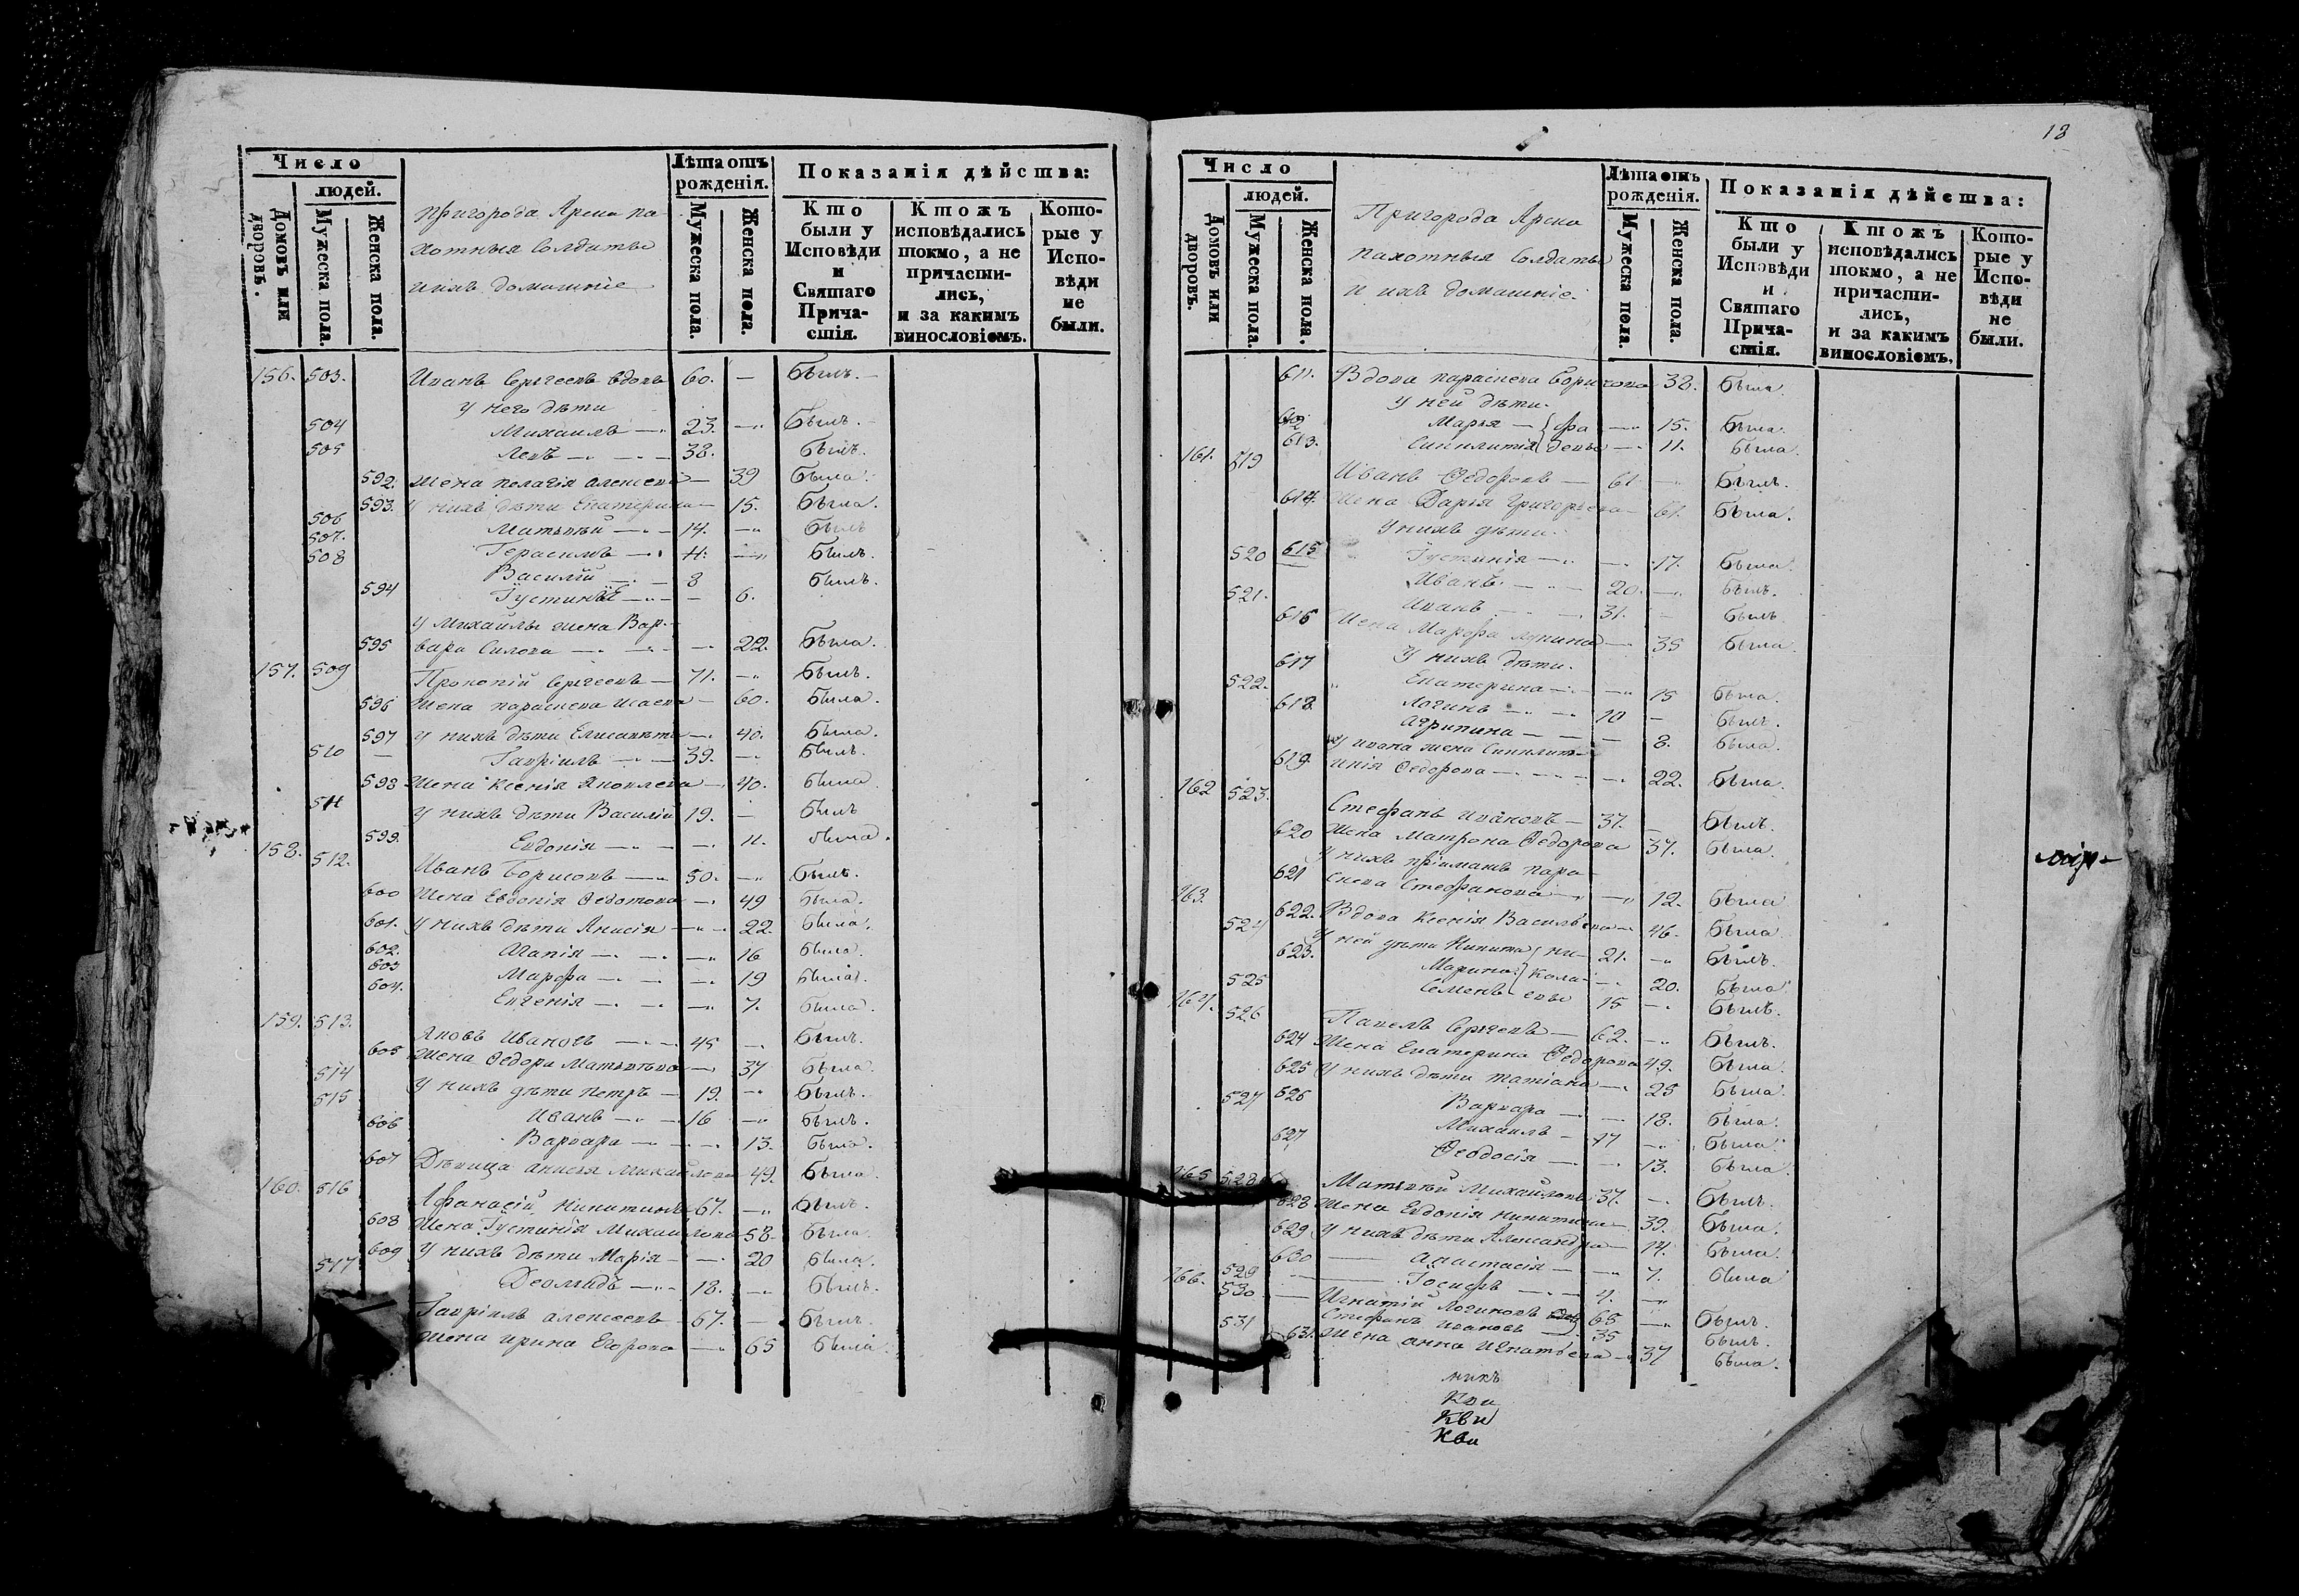 Число
людей.
Домовъ или дворовъ.
Мужеска пола.
Женска пола.
Пригорода Арска па-
хотныя Солдаты
и ихъ домашніе
Лѣта отъ рожденія.
Мужеска пола.
Женска пола.
Показанія дѣйства:
Кто были у Исповѣди и Святаго Причастія.
Ктожъ исповѣдались токмо, а не причастились, и за какимъ винословіемъ.
Которые у Исповѣди не были.
156. 503. Иванъ Сергеевъ вдовъ 60. — Былъ.
у него дѣти
504 Михаилъ 23. — Былъ.
505 Левъ 38. Былъ.
592. Жена Пелагія Алексеева — 39 Была.
593. У нихъ дѣти Екатерина — 15. Была.
506 Матвѣй 14. — Былъ
507. Герасимъ 11. — Былъ.
508 Василій 8 Былъ.
594 Густинія — 6.
У Михайлы жена Вар-
595 вара Силова — 22. Была.
157. 509 Прокопій Сергеевъ — 71. — Былъ.
596 Жена Параскева Исаева — 60. Была.
597 У нихъ дѣти Елисавета — 40. Была.
510 — Гавріилъ — 39. — Былъ.
598 Жена Ксенія Яковлева — 40. Была
511 У нихъ дѣти Василій 19. — Былъ
599. Евдокія — 11. Была.
158. 512. Иванъ Борисовъ — 50. — Былъ.
600 Жена Евдокія Федотова — 49 Была.
601. У нихъ дѣти Анисія — 22. Была.
602. Агапія — 16 Была.
603 Марфа — 19 Была.
604. Евгенія — 7. Была.
159. 513. Яковъ Ивановъ — 45 — Былъ.
605 Жена Федора Матвѣева — 37 Была.
514 У нихъ дѣти Петръ — 19. — Былъ.
515 Иванъ — 16 — Былъ.
606 Варвара — 13. Была.
607 Дѣвица Анисья Михайлова 49. Была.
160. 516 Афанасій Никитинъ 67. — Былъ.
608 Жена Густинія Михайлова 58. Была.
609 У нихъ дѣти Марія — 20 Была.
517 Деомидъ — 18. — Былъ.
Гавріилъ Алексеевъ 67. — Былъ.
Жена Ирина Егорова — 65 Была
18
Число
людей.
Домовъ или дворовъ.
Мужеска пола.
Женска пола.
Пригорода Арска
пахотныя Солдаты
и ихъ домашніе.
Лѣта отъ рожденія.
Мужеска пола.
Женска пола.
Показанія дѣйства:
Кто были у Исповѣди и Святаго Причастія.
Ктожъ исповѣдались токмо, а не причастились, и за какимъ винословіемъ.
Которые у Исповѣди не были.
611. Вдова Параскева Борисова 38. Была.
У ней дѣти.
612 Марья — 15. Была.
613. Синклитія — 11. Была.
161. 519 Иванъ Федоровъ — 61 — Былъ.
614. Жена Дарья Григорьева — 61. Была.
У нихъ дѣти.
520 615 Густинія — 17. Была.
Иванъ. 20. — Былъ.
521. Иванъ 31. — Былъ
616 Жена Марфа — 35 Была.
617 У нихъ дѣти.
522. Екатерина — 15 Была.
618. Логинъ — 10 — Былъ.
Агрипина — 8. Была.
У Ивана жена Синклит-
619 икія Федорова — 22. Была.
162 523. Стефанъ Ивановъ — 37. — Былъ.
620 Жена Матрона Федорова 37. Была.
У нихъ пріимышъ Пара-
621 скева Стефанова — 12. Была
163. 622. Вдова Ксенія Васильева — 46. Была
524 У ней дѣти Никита 21. — Былъ.
623. Марина — 20. Была.
525 Семенъ 15 — Былъ.
164. 526 Павелъ Сергеевъ — 62. — Былъ.
624 Жена Екатерина Федорова 49. Была.
625 У нихъ дѣти Татіана — 25 Была.
527 626 Варвара — 18. Была.
Михаилъ — 17 — Была.
627 Феодосія — 13. Была.
165 528 Матвѣй Михайловъ 37. — Былъ.
628 Жена Евдокія Никитина 39. Была.
629 У нихъ дѣти Александра 14. Была.
630 Анастасія — 7. Была
529 Іосифъ — 4. —
166. 530 Игнатій Логиновъ 65 — Былъ.
531 Стефанъ Ивановъ 35 Былъ.
631. Жена Анна Игнатьева — 37 Была.
никъ
Кви
Кви
Кви